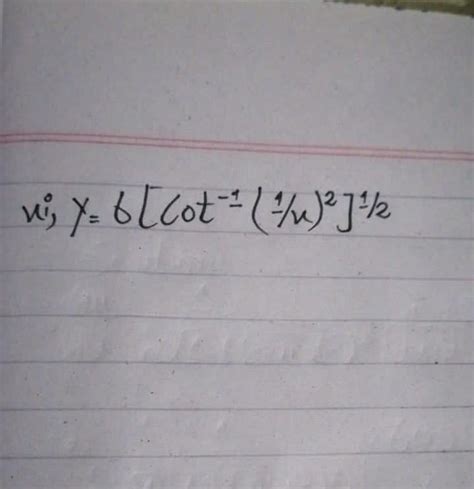 xi, y= 6[Cot⁻¹(1/x)²]1/2